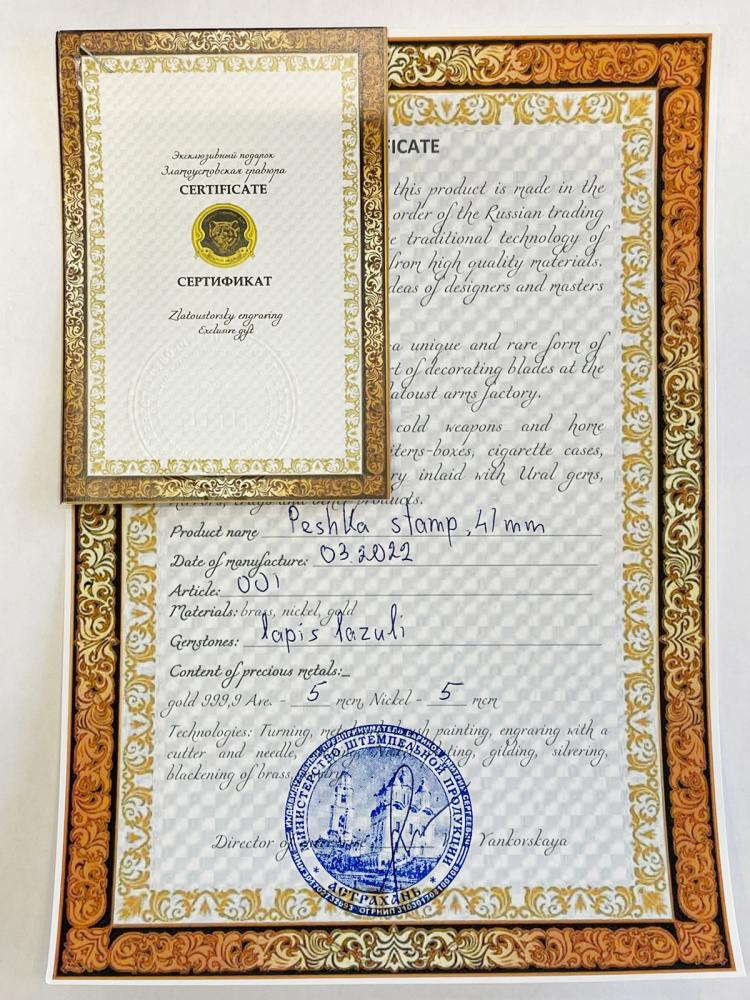 Эксклюзивный подарок
Златоустовская гравюра
CERTIFICATE
СЕРТИФИКАТ
Zlatoustovsky engraving
Exclusive gift
FICATE
this product is made in the
order of the Russian trading
traditional technology of
from high quality materials.
deas of designers and masters
a unique and rare form of
of decorating blades at the
latoust arms factory.
cold weapons and home
items-boxes, cigarette cases,
inlaid with Ural gems,
and other products.
Product name Peshka stamp, 41 mm
Date of manufacture: 03.2022
Article: 001
Materials: brass, nickel, gold
Gemstones: lapis lazuli
Content of precious metals:_
gold 999,9 Are. - 5 mcm, Nickel - 5 mcm
Technologies: Turning, painting, engraving with a
cutter and needle, gilding, silvering,
blackening of brass,
Director Yankorskaya
ИНДИВИДУАЛЬНЫЙ ПРЕДПРИНИМАТЕЛЬ СЕРГЕЕВИЧ
МИНИСТЕРСТВО ШТЕМПЕЛЬНОЙ ПРОДУКЦИИ
* АСТРАХАНЬ *